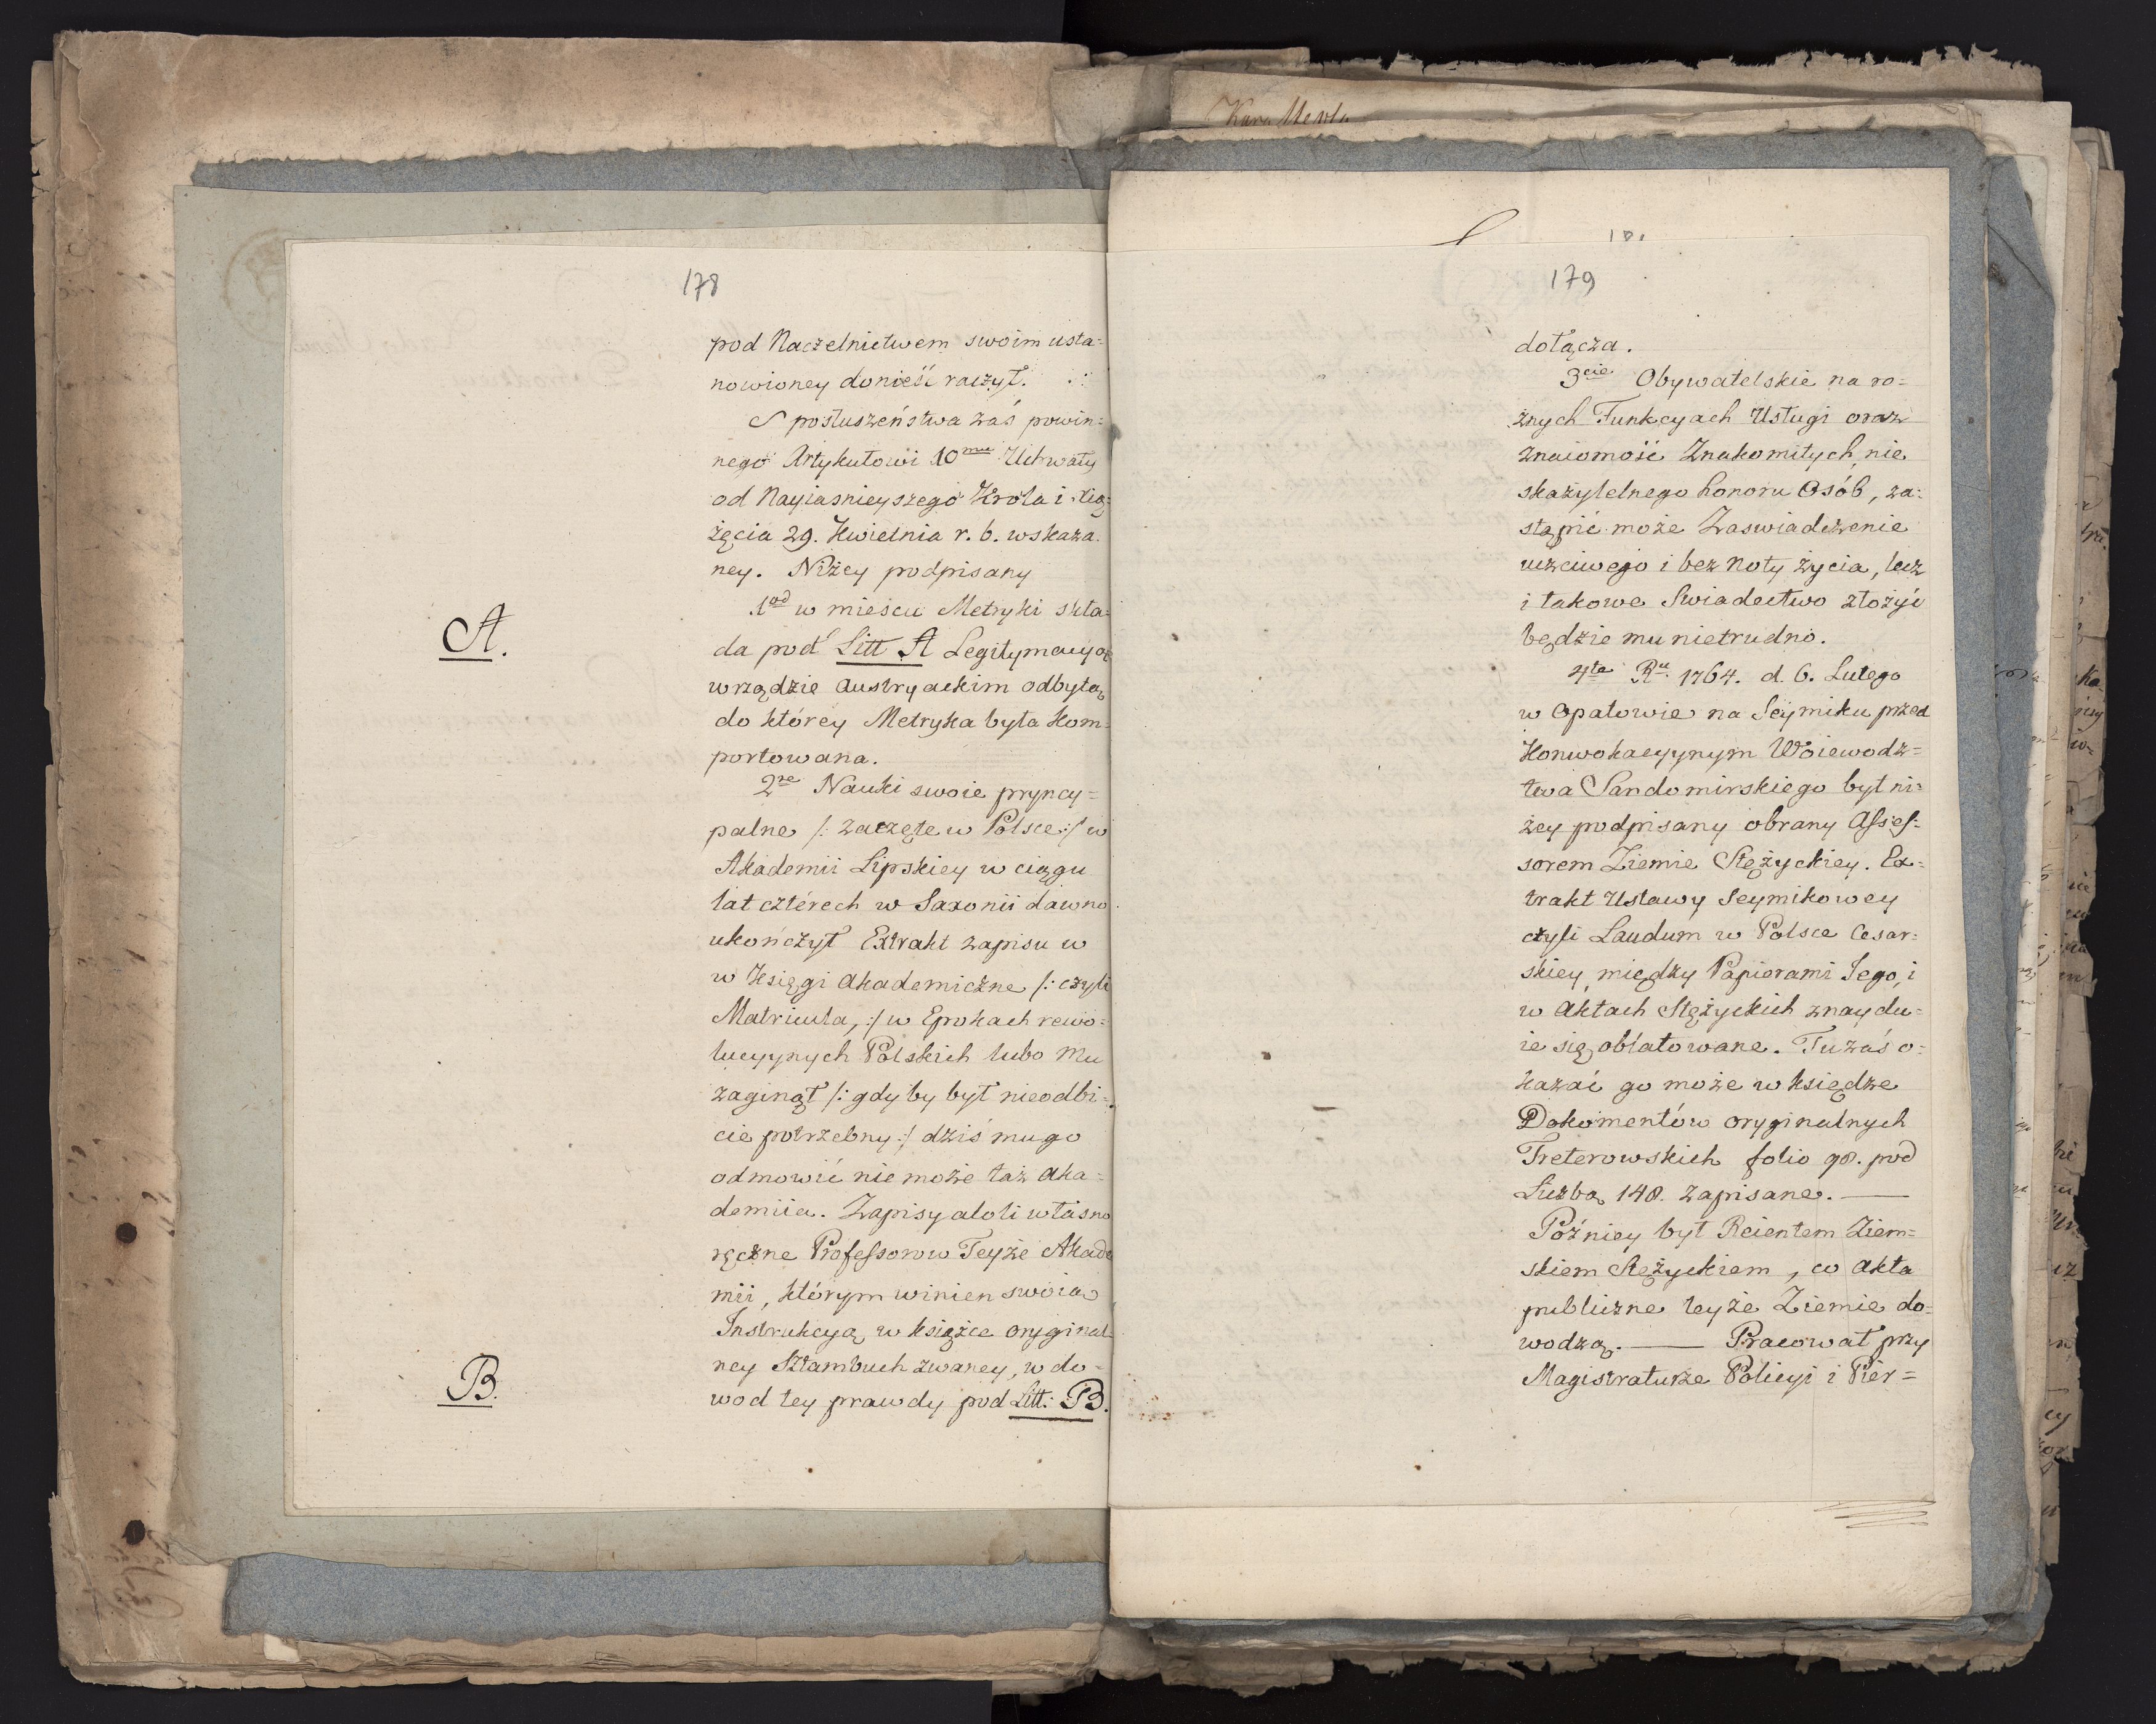 Kara
178
pod Naczelnictwem swoim usta=
nowioney donieść raczył.
S posłuszeństwa zaś powin=
nego Artykułowi 10mu Uchwały
od Nayiasnieyszego Krola i Xią=
żęcia 29. Kwietnia r. b. wskaza=
ney. Niżey podpisany
1od w mieścu Metryki skła=
A.
da pod Litt A Legitymacyą
w rządzie austryackim odbytą,
do którey Metryka była kom=
portowana.
2re Nauki swoie pryncy=
palne /: zaczęte w Polsce :/ w
Akademii Lipskiey w ciągu
lat czterech w Saxonii dawno
ukończył Extrakt zapisu w
w Księgi akademiczne /: czyli
Matricula, :/ w Epokach rewo=
lucyynych Polskich lubo mu
zaginął /: gdyby był nieodbi=
cie potrzebny :/ dziś mu go
odmowić nie może taż aka=
demiia. Zapisy aloli własno
ręczne Professorow Teyże Akade
mii, którym winien swoią
Instrukcyą, w książce oryginal=
ney Sztambuch zwaney, w do=
B.
wod tey prawdy pod Litt: B.
179
dołącza.
3cie Obywatelskie na ro=
żnych Funkcyach Usługi oraz
znaiomość Znakomitych, nie
skazytelnego honoru Osób, za=
stąpić może Zaswiadczenie
uczciwego i bez noty życia, lecz
i takowe Swiadectwo złożyć
będzie mu nietrudno.
4te Ru 1764. d. 6. Lutego
w Opatowie na Seymiku przed
Konwokacyynym Woiewodz=
twa Sandomirskiego był ni=
żey podpisany obrany Asses=
sorem Ziemie Stężyckiey. Ex=
trakt Ustawy Seymikowey
czyli Laudum w Polsce Cesar=
skiey, między Papierami Jego, i
w aktach Stężyckich znaydu=
ie się oblatowane. Tu zaś o=
kazać go może w księdze
Dokumentów oryginalnych
Treterowskich folio 98. pod
Liczbą 148. zapisane.
Pozniey był Reientem Ziem=
skiem Stężyckiem, co akta
publiczne teyże Ziemie do=
wodzą. Pracował przy
Magistraturze Policyi i Pier=